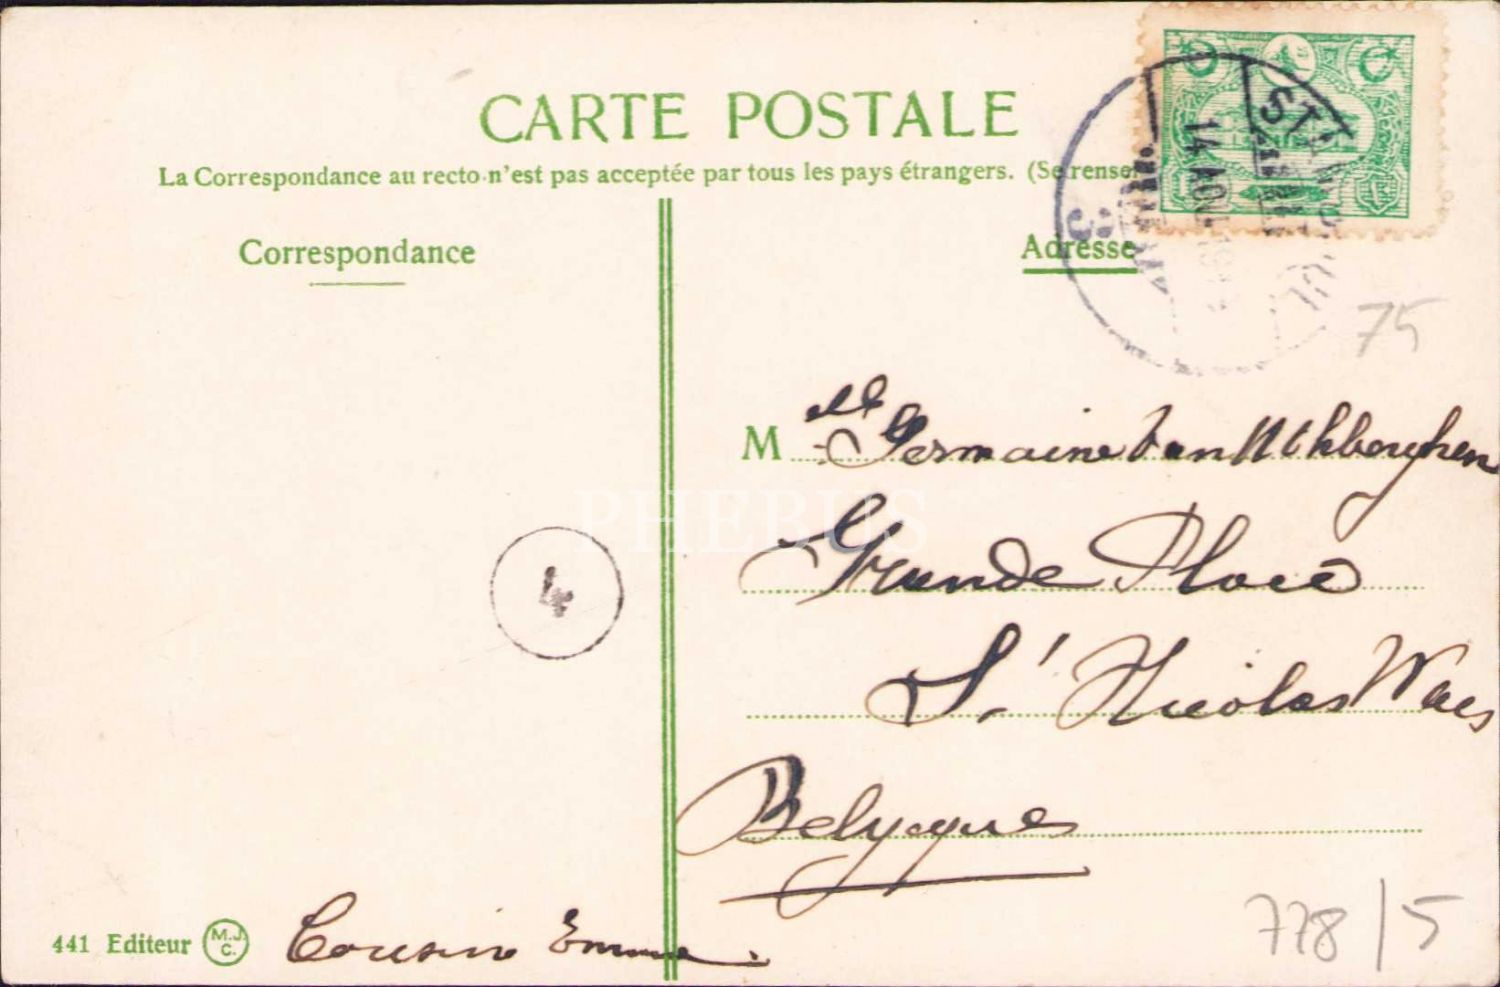 CARTE POSTALE
La Correspondance au recto n'est pas acceptée par tous les pays étrangers. (Se rensei
Correspondance
Adresse
STAMBOUL
14 AOU
3
75
M elle Germaine Van
Grande Place
St Nicolas Waes
Belgique
PHEBUS
4
441 Editeur M.J.C.
Cousin Emma.
778/5